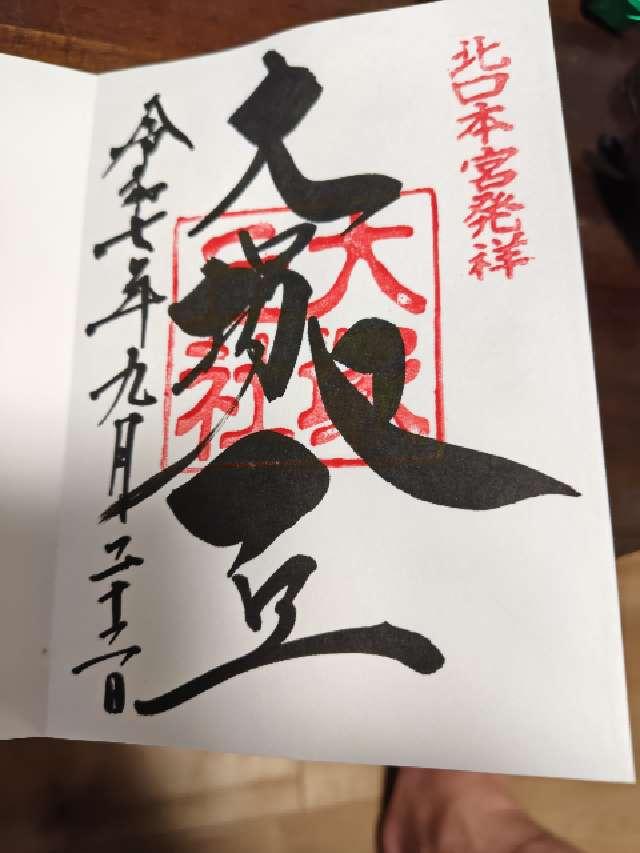 北口本宮発祥
大塚丘
大塚
丘社
令和七年九月二十二日